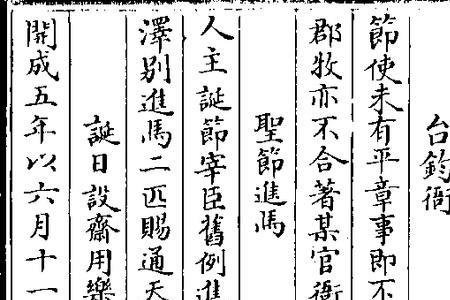 台鈞銜
節使未有平章事即不
郡牧亦不合著某官銜
聖節進馬
人主誕節宰臣舊例進
澤別進馬二匹賜通天
誕日設齋用樂
開成五年以六月十一